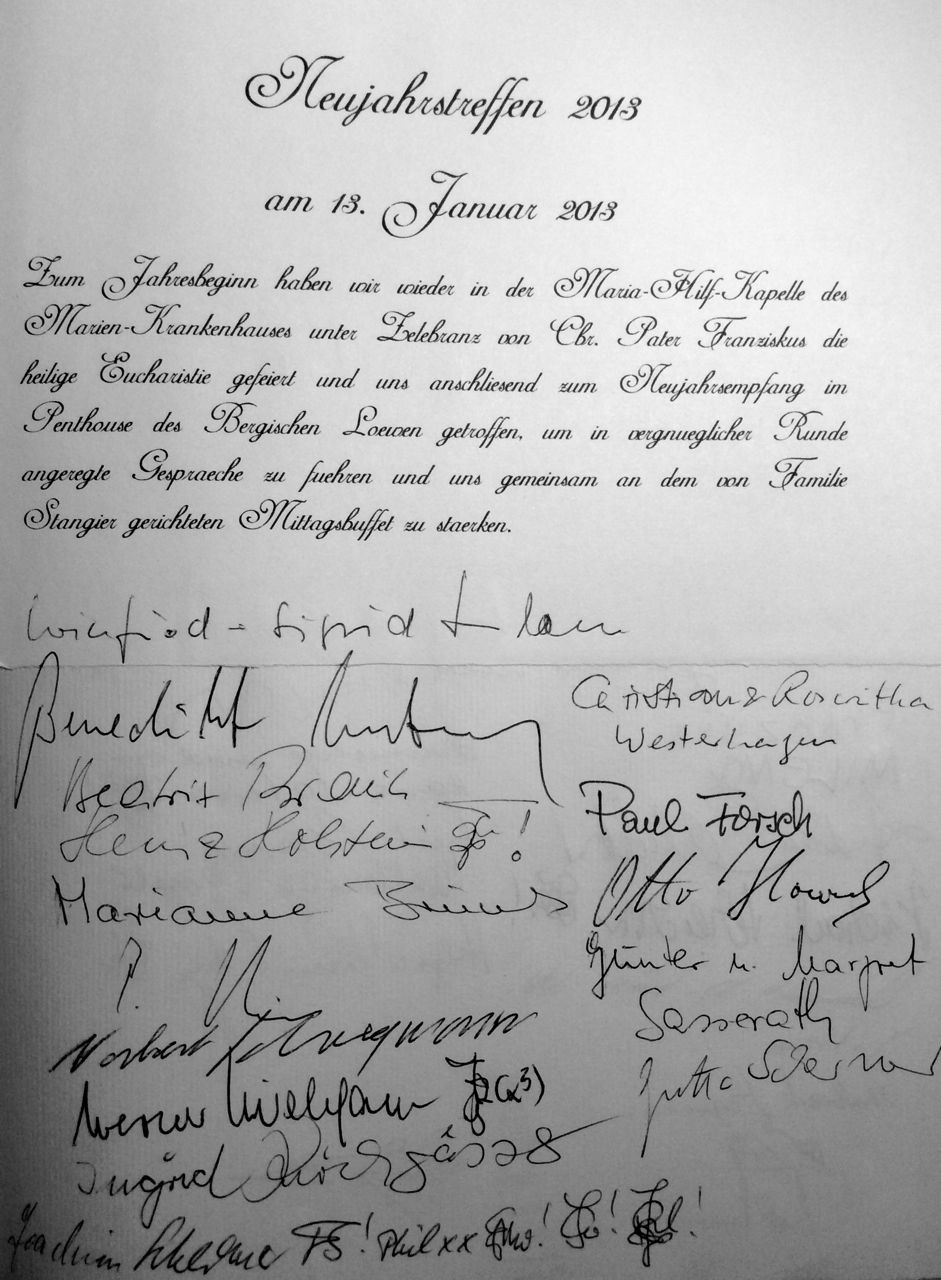 Neujahrstreffen 2013
am 13. Januar 2013
Zum Jahresbeginn haben wir wieder in der Maria-Hilf-Kapelle des
Marien-Krankenhauses unter Zelebranz von Cbr. Pater Franziskus die
heilige Eucharistie gefeiert und uns anschliesend zum Neujahrsempfang im
Penthouse des Bergischen Loewen getroffen, um in vergnueglicher Runde
angeregte Gespraeche zu fuehren und uns gemeinsam an dem von Familie
Stangier gerichteten Mittagsbuffet zu staerken.
Winfried - Sigrid
Benedikt
Christian & Roswitha
Westerhagen
Beatrix
Paul Försch
Heinz Holstein
Otto
Marianne
Günter u. Margret
Sasserath
Norbert
Jutta
Werner
Ingrid
Joachim